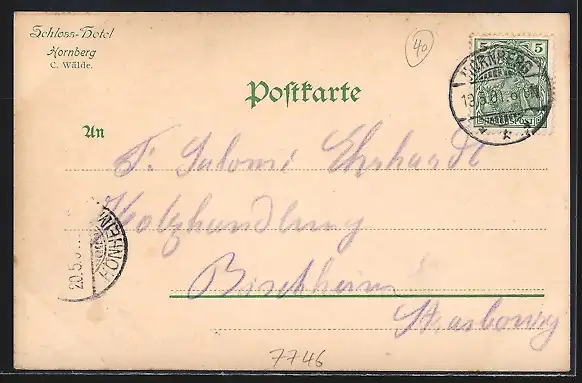 Schloss-Hotel
Hornberg
C. Wälde.
40
5 5
HORNBERG
Postkarte
An
F. Salomé Ehrhardt
Holzhandlung
Bischheim
Strasbourg
HÖNHEIM
20.5.0
7746